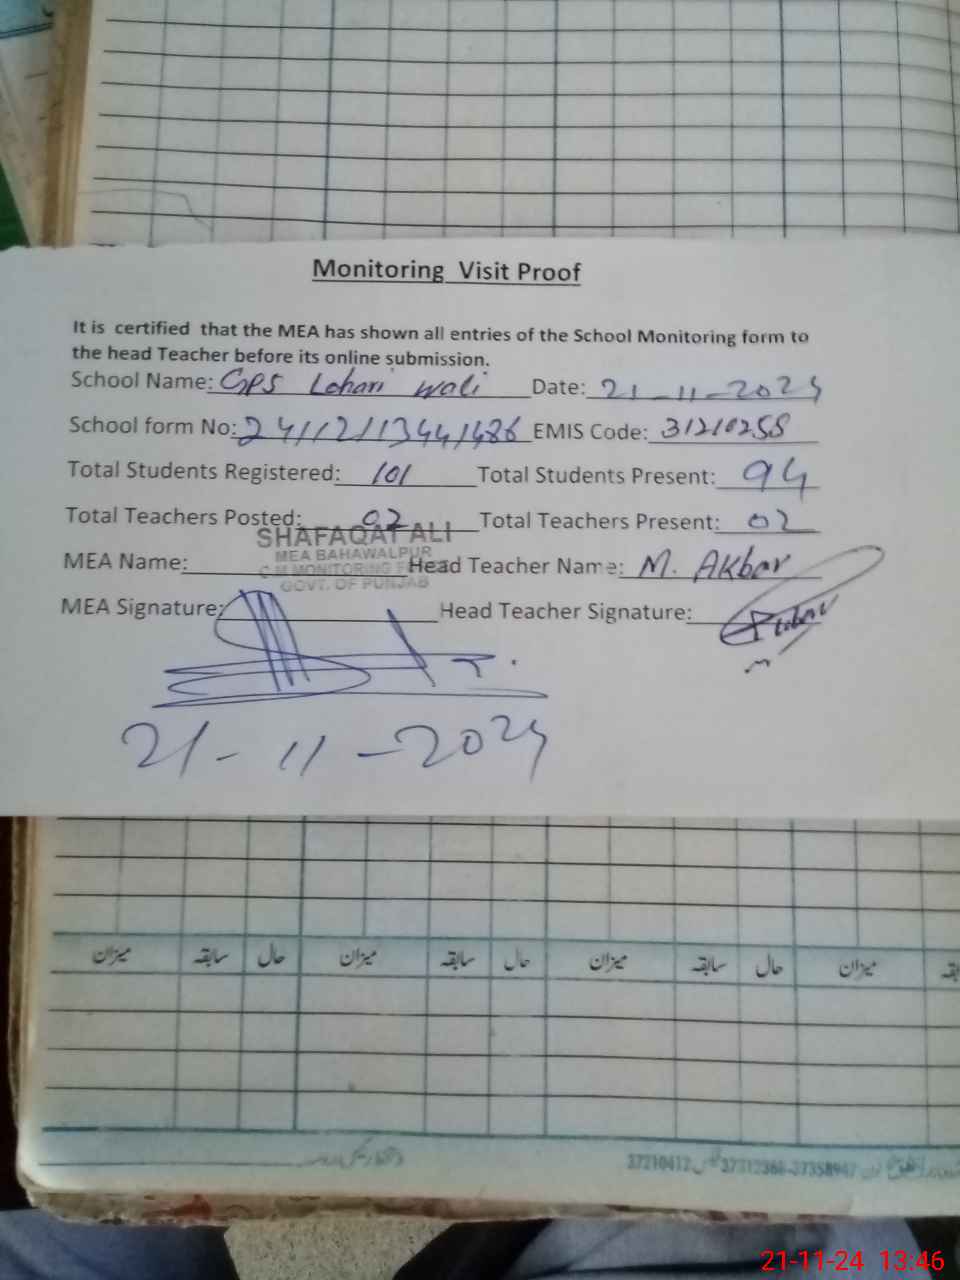 Monitoring Visit Proof
It is certified that the MEA has shown all entries of the School Monitoring form to
the head Teacher before its online submission.
School Name: GPS Lohari wali Date: 21-11-2024
School form No: 24112113441486 EMIS Code: 31210258
Total Students Registered: 101 Total Students Present: 94
Total Teachers Posted: 02 Total Teachers Present: 02
SHAFAQAT ALI
MEA BAHAWALPUR
MEA Name: Head Teacher Name: M. Akbar
C.M MONITORING
GOVT. OF PUNJAB
MEA Signature: Head Teacher Signature:
21-11-2024
میزان سابقہ حال میزان سابقہ حال میزان سابقہ حال میزان
37210417 37312368-37358947
21-11-24 13:46